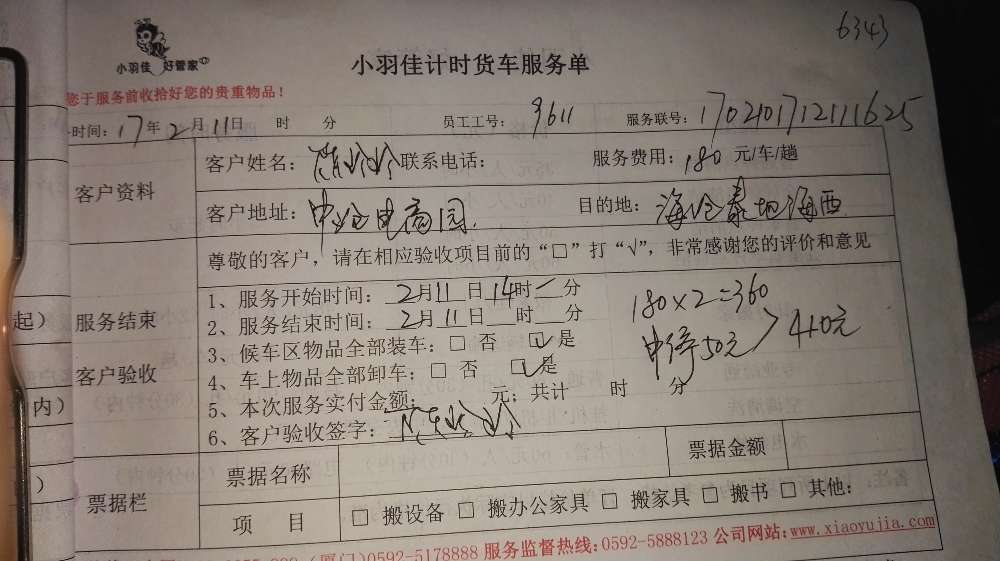 6343
小羽佳 好管家
小羽佳计时货车服务单
您于服务前收拾好您的贵重物品！
时间：17年2月11日 时 分 员工工号：9611 服务联号：1702101712111625
客户资料
客户姓名： 联系电话： 服务费用：180元/车/趟
客户地址：中沧电商园 目的地：海沧泰地海西
尊敬的客户，请在相应验收项目前的“□”打“√”，非常感谢您的评价和意见
服务结束
客户验收
1、服务开始时间：2月11日14时 分
2、服务结束时间：2月11日 时 分
3、候车区物品全部装车：□ 否 ☑ 是
4、车上物品全部卸车：□ 否 ☑ 是
5、本次服务实付金额： 元；共计 时 分
6、客户验收签字：
180×2=360
中停50元
410元
票据栏
票据名称 票据金额
项 目 □ 搬设备 □ 搬办公家具 □ 搬家具 □ 搬书 □ 其他：
(厦门)0592-5178888 服务监督热线：0592-5888123 公司网站：www.xiaoyujia.com
起）
内）
）